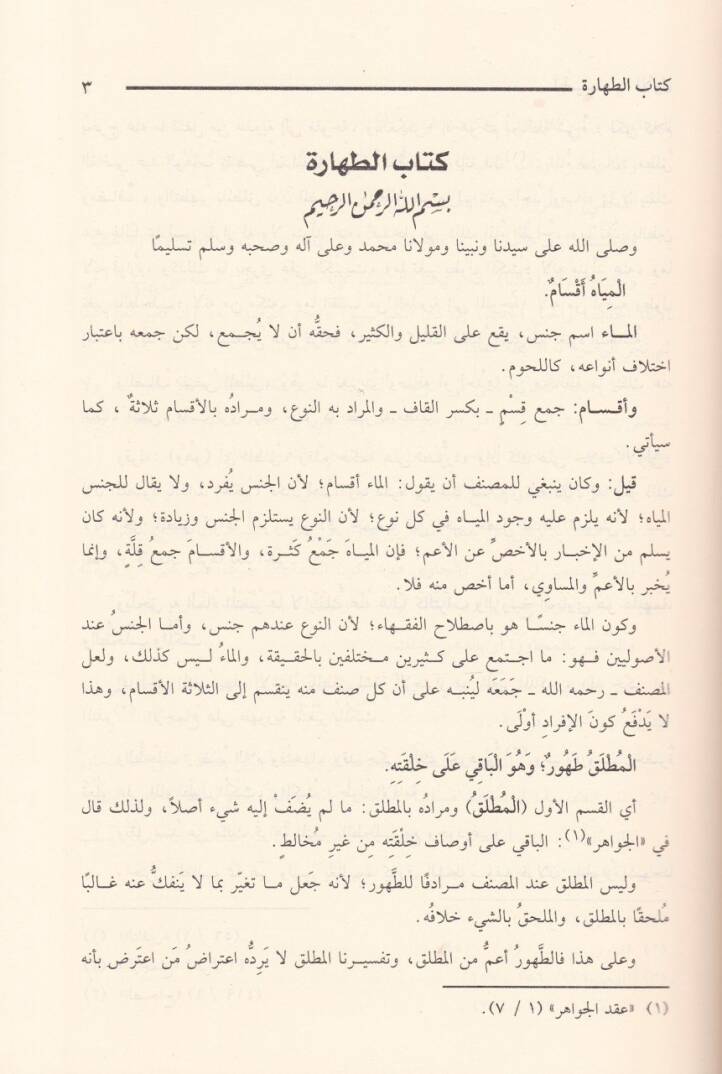 كتاب الطهارة ٣
كتاب الطهارة
بسم الله الرحمن الرحيم
وصلى الله على سيدنا ونبينا ومولانا محمد وعلى آله وصحبه وسلم تسليمًا
الْمِيَاهُ أَقْسَامٌ.
المـاء اسم جنس، يقع على القليل والكثير، فحقُّه أن لا يُجـمع، لكن جمعه باعتبار
اختلاف أنواعه، كاللحوم.
وأقسـام: جمع قِسْمٍ ـ بكسر القاف ـ والمراد به النوع، ومرادُه بالأقسام ثلاثةٌ، كما
سيأتي.
قيل: وكان ينبغي للمصنف أن يقول: الماء أقسام؛ لأن الجنس يُفرد، ولا يقال للجنس
المياه؛ لأنه يلزم عليه وجود الميـاه في كل نوع؛ لأن النوع يستلزم الجنس وزيادة؛ ولأنه كان
يسلم من الإخبـار بالأخصِّ عن الأعم؛ فإن الميـاهَ جَمْعُ كَثـرة، والأقسـامَ جمعُ قلَّةٍ، وإنما
يُخبر بالأعمِّ والمساوِي، أما أخص منه فلا.
وكون الماء جنسًـا هو باصطلاح الفقـهاء؛ لأن النوع عندهم جنس، وأمـا الجنسُ عند
الأصوليين فـهو: ما اجتمع على كـثيرين مـختلفين بالحقيقة، والماءُ لـيس كذلك، ولعل
المصنف ـ رحمه الله ـ جَمَعَه ليُنبـه على أن كل صنف منه ينقسم إلى الثلاثة الأقسام، وهذا
لا يَدْفَعُ كونَ الإفرادِ أَوْلَى.
الْمُطْلَقُ طَهُورٌ؛ وَهُوَ الْبَاقِي عَلَى خِلْقَتِهِ.
أي القسم الأول (الْمُطْلَقُ) ومرادُه بالمطلق: ما لم يُضَفْ إليه شيء أصلاً، ولذلك قال
في «الجواهر»(١): الباقي على أوصاف خِلْقَتِه مِن غيرِ مُخالطٍ.
وليس المطلق عند المصنف مرادفًا للطَّهور؛ لأنه جَعل مـا تغيّر بما لا يَنفكُّ عنه غـالبًا
مُلحقًا بالمطلق، والملحقُ بالشيء خلافُه.
وعلى هذا فالطَّهورُ أعمُّ من المطلق، وتفسيـرنا المطلق لا يَرِدُّه اعتراضُ مَن اعتَرض بأنه
(١) «عقد الجواهر» (١ / ٧).